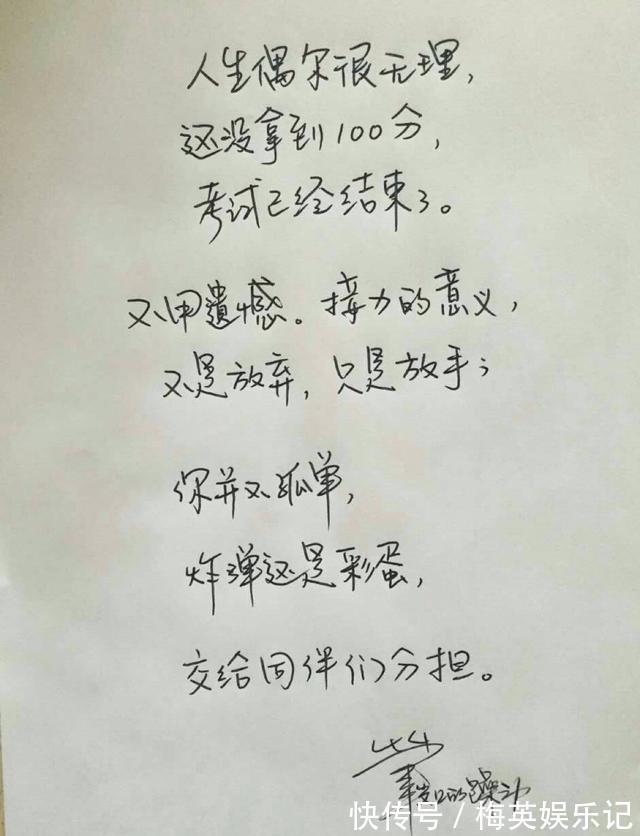 人生偶尔很无理，
还没拿到100分，
考试已经结束了。
不用遗憾。接力的意义，
不是放弃，只是放手；
你并不孤单，
炸弹还是彩蛋，
交给同伴们分担。
快传号/梅英娱乐记